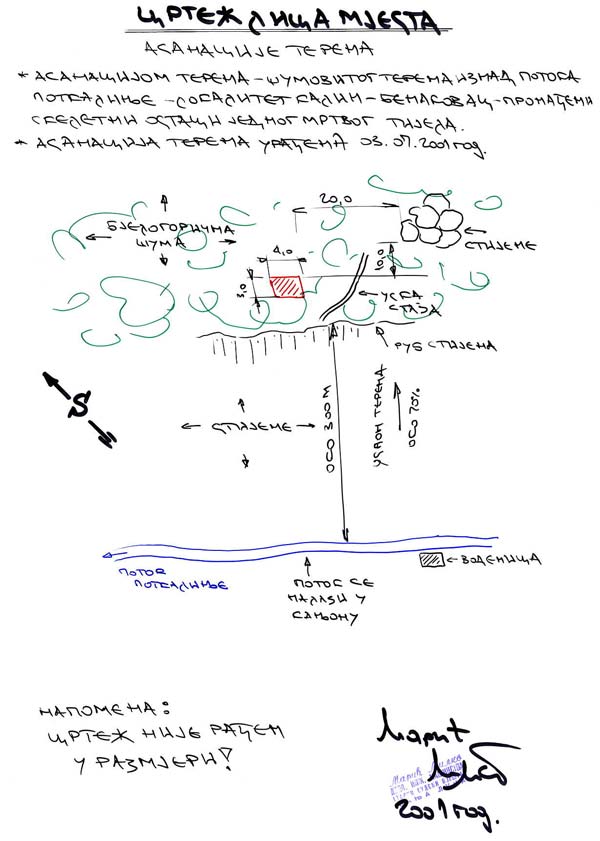 ЦРТЕЖ ЛИЦА МЈЕСТА
АСАНАЦИЈЕ ТЕРЕНА
* АСАНАЦИЈОМ ТЕРЕНА – ШУМОВИТОГ ТЕРЕНА ИЗНАД ПОТОКА
ПОТКАЛИЊЕ – ЛОКАЛИТЕТ КАЛИН – БЕНАКОВАЦ – ПРОНАЂЕНИ
СКЕЛЕТНИ ОСТАЦИ ЈЕДНОГ МРТВОГ ТИЈЕЛА.
* АСАНАЦИЈА ТЕРЕНА УРАЂЕНА 03.07.2001 год.
20,0
БЈЕЛОГОРИЧНА
ШУМА
СТИЈЕНЕ
4,0
10,0
3,0
УСКА
СТАЗА
РУБ СТИЈЕНА
S
СТИЈЕНЕ
ОКО 300 М
УСПОН ТЕРЕНА
ОКО 70%
ПОТОК
ПОТКАЛИЊЕ
ПОТОК СЕ
НАЛАЗИ У
КАЊОНУ
ВОДЕНИЦА
НАПОМЕНА:
ЦРТЕЖ НИЈЕ РАЂЕН
У РАЗМЈЕРИ!
Марић
2001 год.